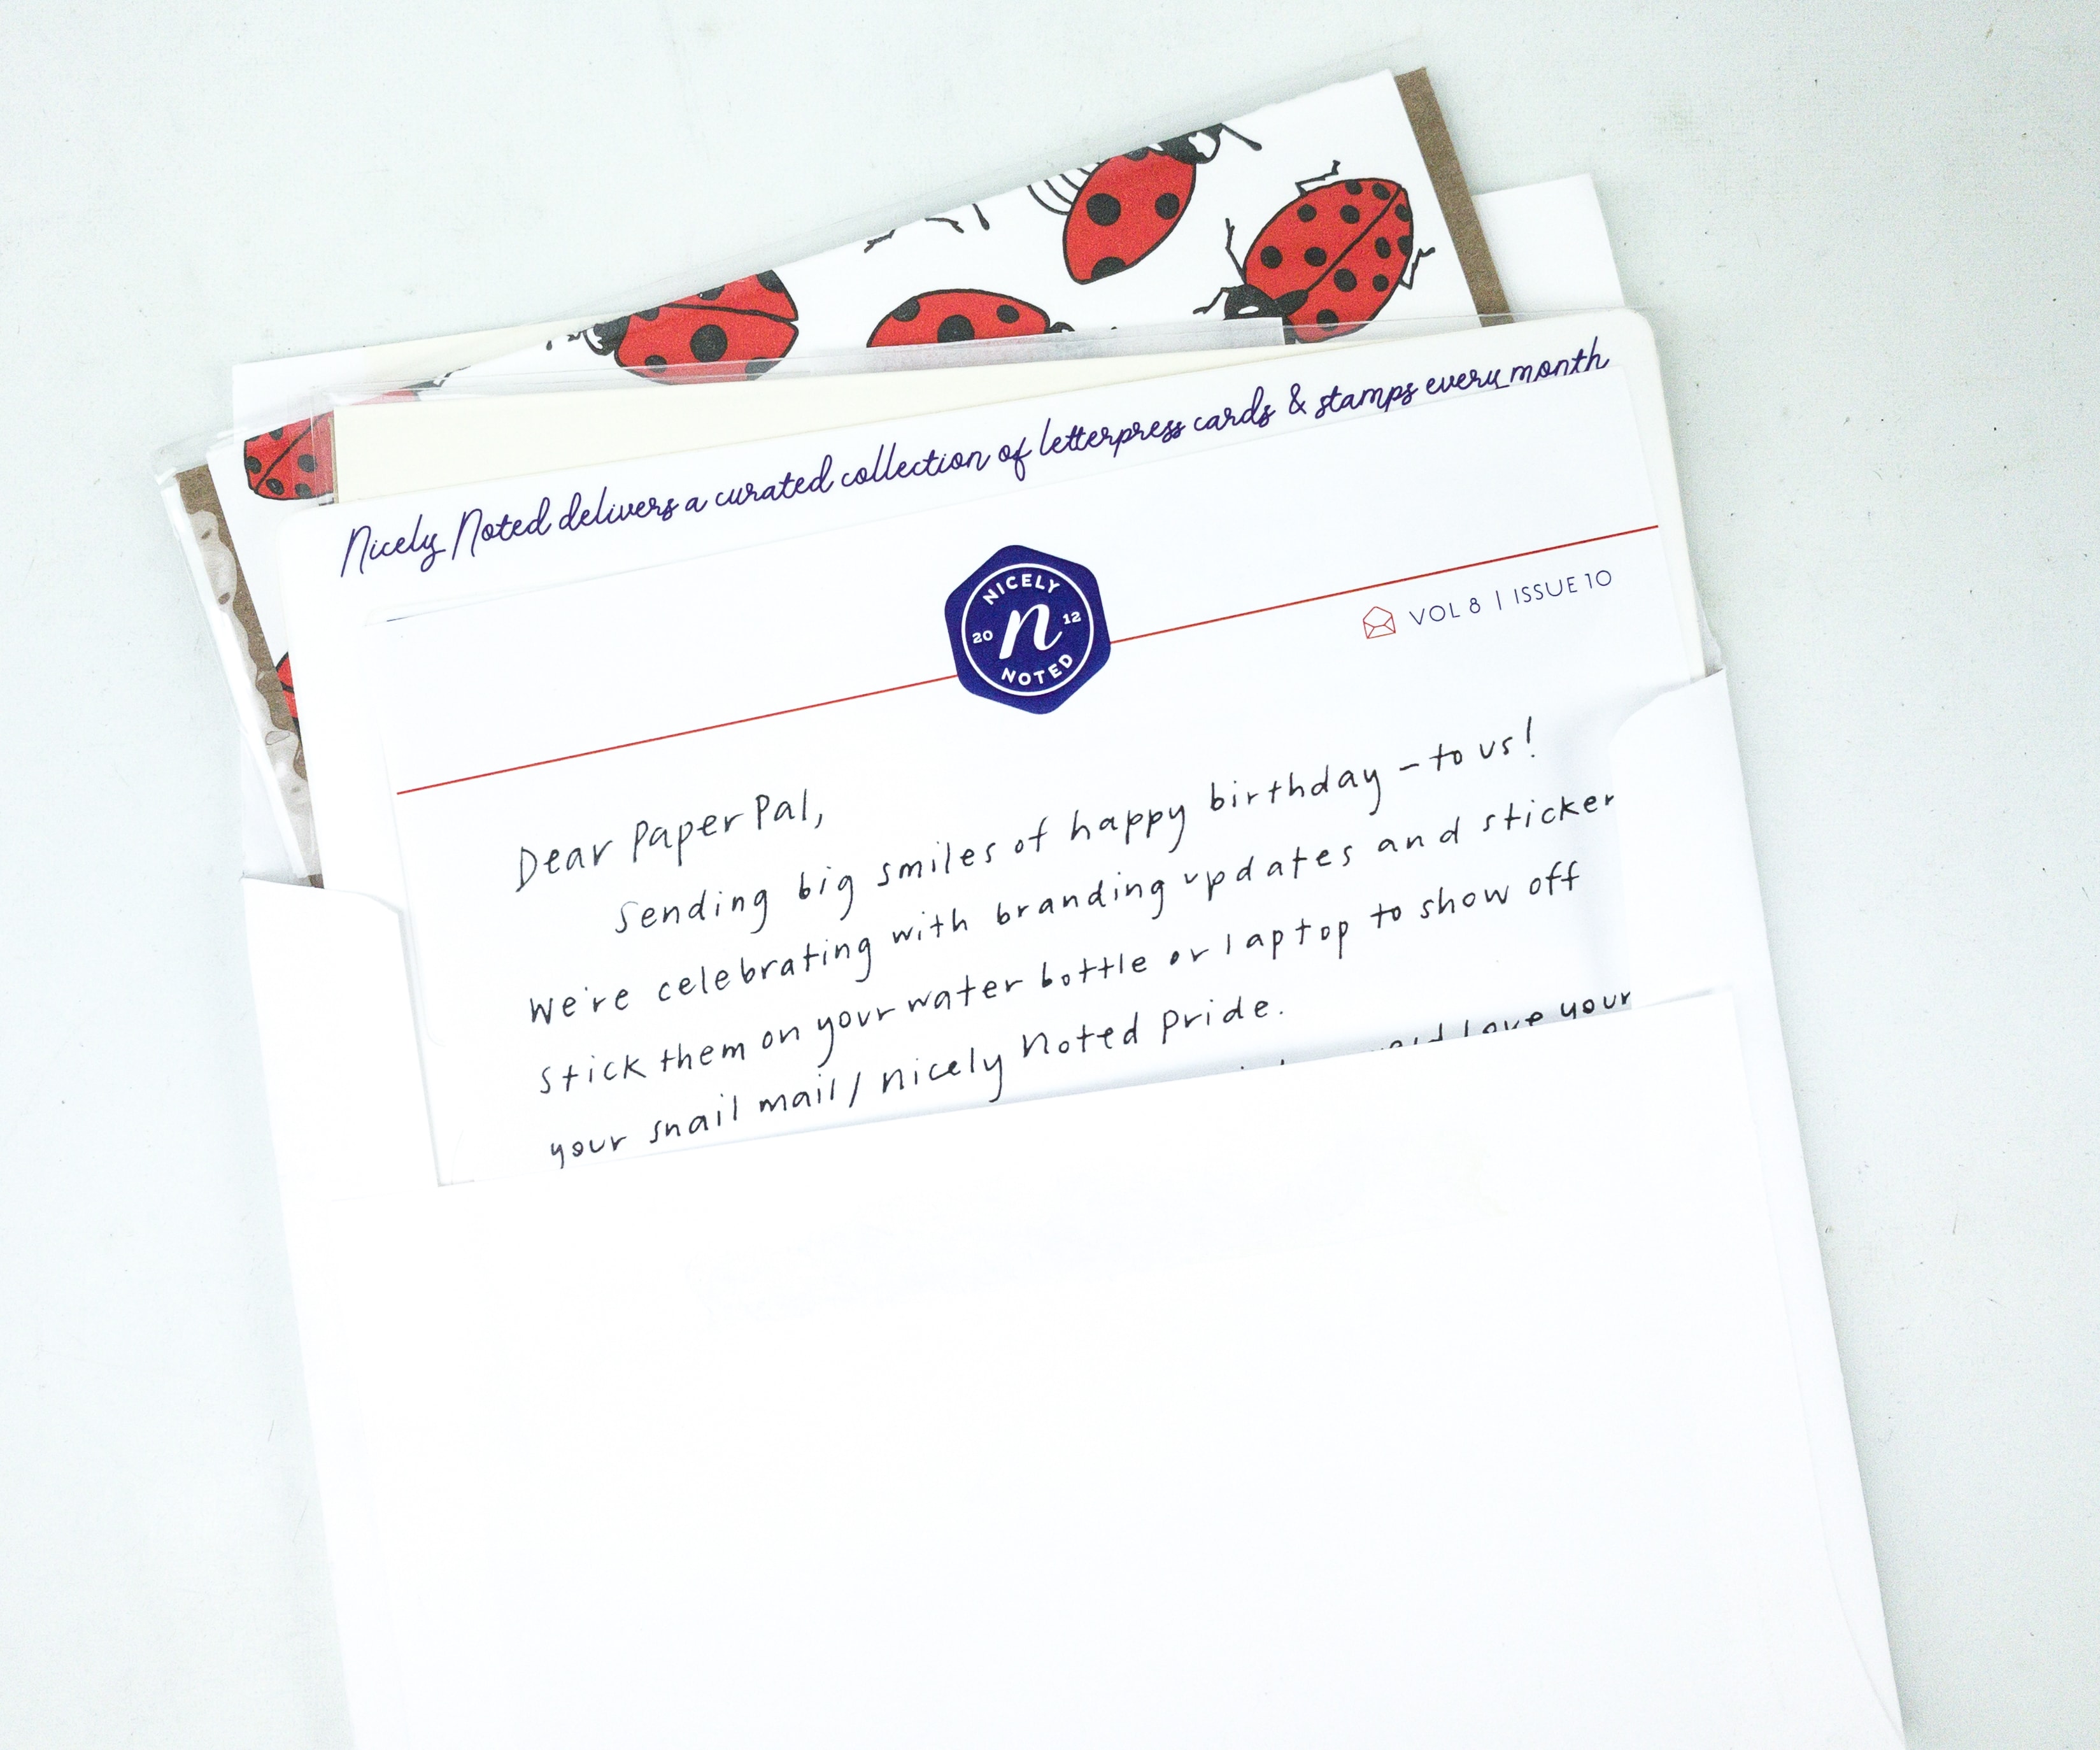 Nicely Noted delivers a curated collection of letterpress cards & stamps every month
NICELY
20 n 12
NOTED
VOL 8 | ISSUE 10
Dear Paper Pal,
Sending big smiles of happy birthday – to us!
We're celebrating with branding updates and sticker
stick them on your water bottle or laptop to show off
your snail mail/nicely noted pride.
love your